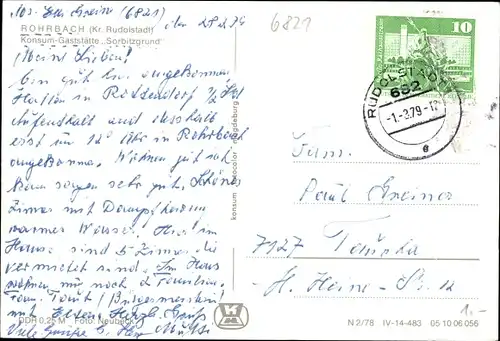 bei Greiner (6821)
den 28.2.79
6821
ROHRBACH (Kr. Rudolstadt)
Konsum-Gaststätte „Sorbitzgrund"
Meine Lieben!
Bin gut hier angekommen,
Hatten in Rottendorf 1/2 Std
Aufenthalt und deshalb
erst um 12 Uhr in Rohrbach
angekommen. Wohnen gut und
kann sagen sehr gut. Schönes
Zimmer mit Dampfheizung
warmes Wasser. Hier im
Hause sind 5 Zimmer die
vermietet sind. Im Haus
wohnen nur noch 2 Familien
(Bürgermeister)
mit Eltern. Herzl. Gruß
Viele Grüße
DDR 0,25 M Foto: Neubeck
konsum fotocolor magdeburg
10
RUDOLSTADT
682
-1.-3.79-12
e
Fam.
Paul Greiner
7127 Taucha
H. Heine-Str. 12
1.-
N 2/78 IV-14-483 05 10 06 056